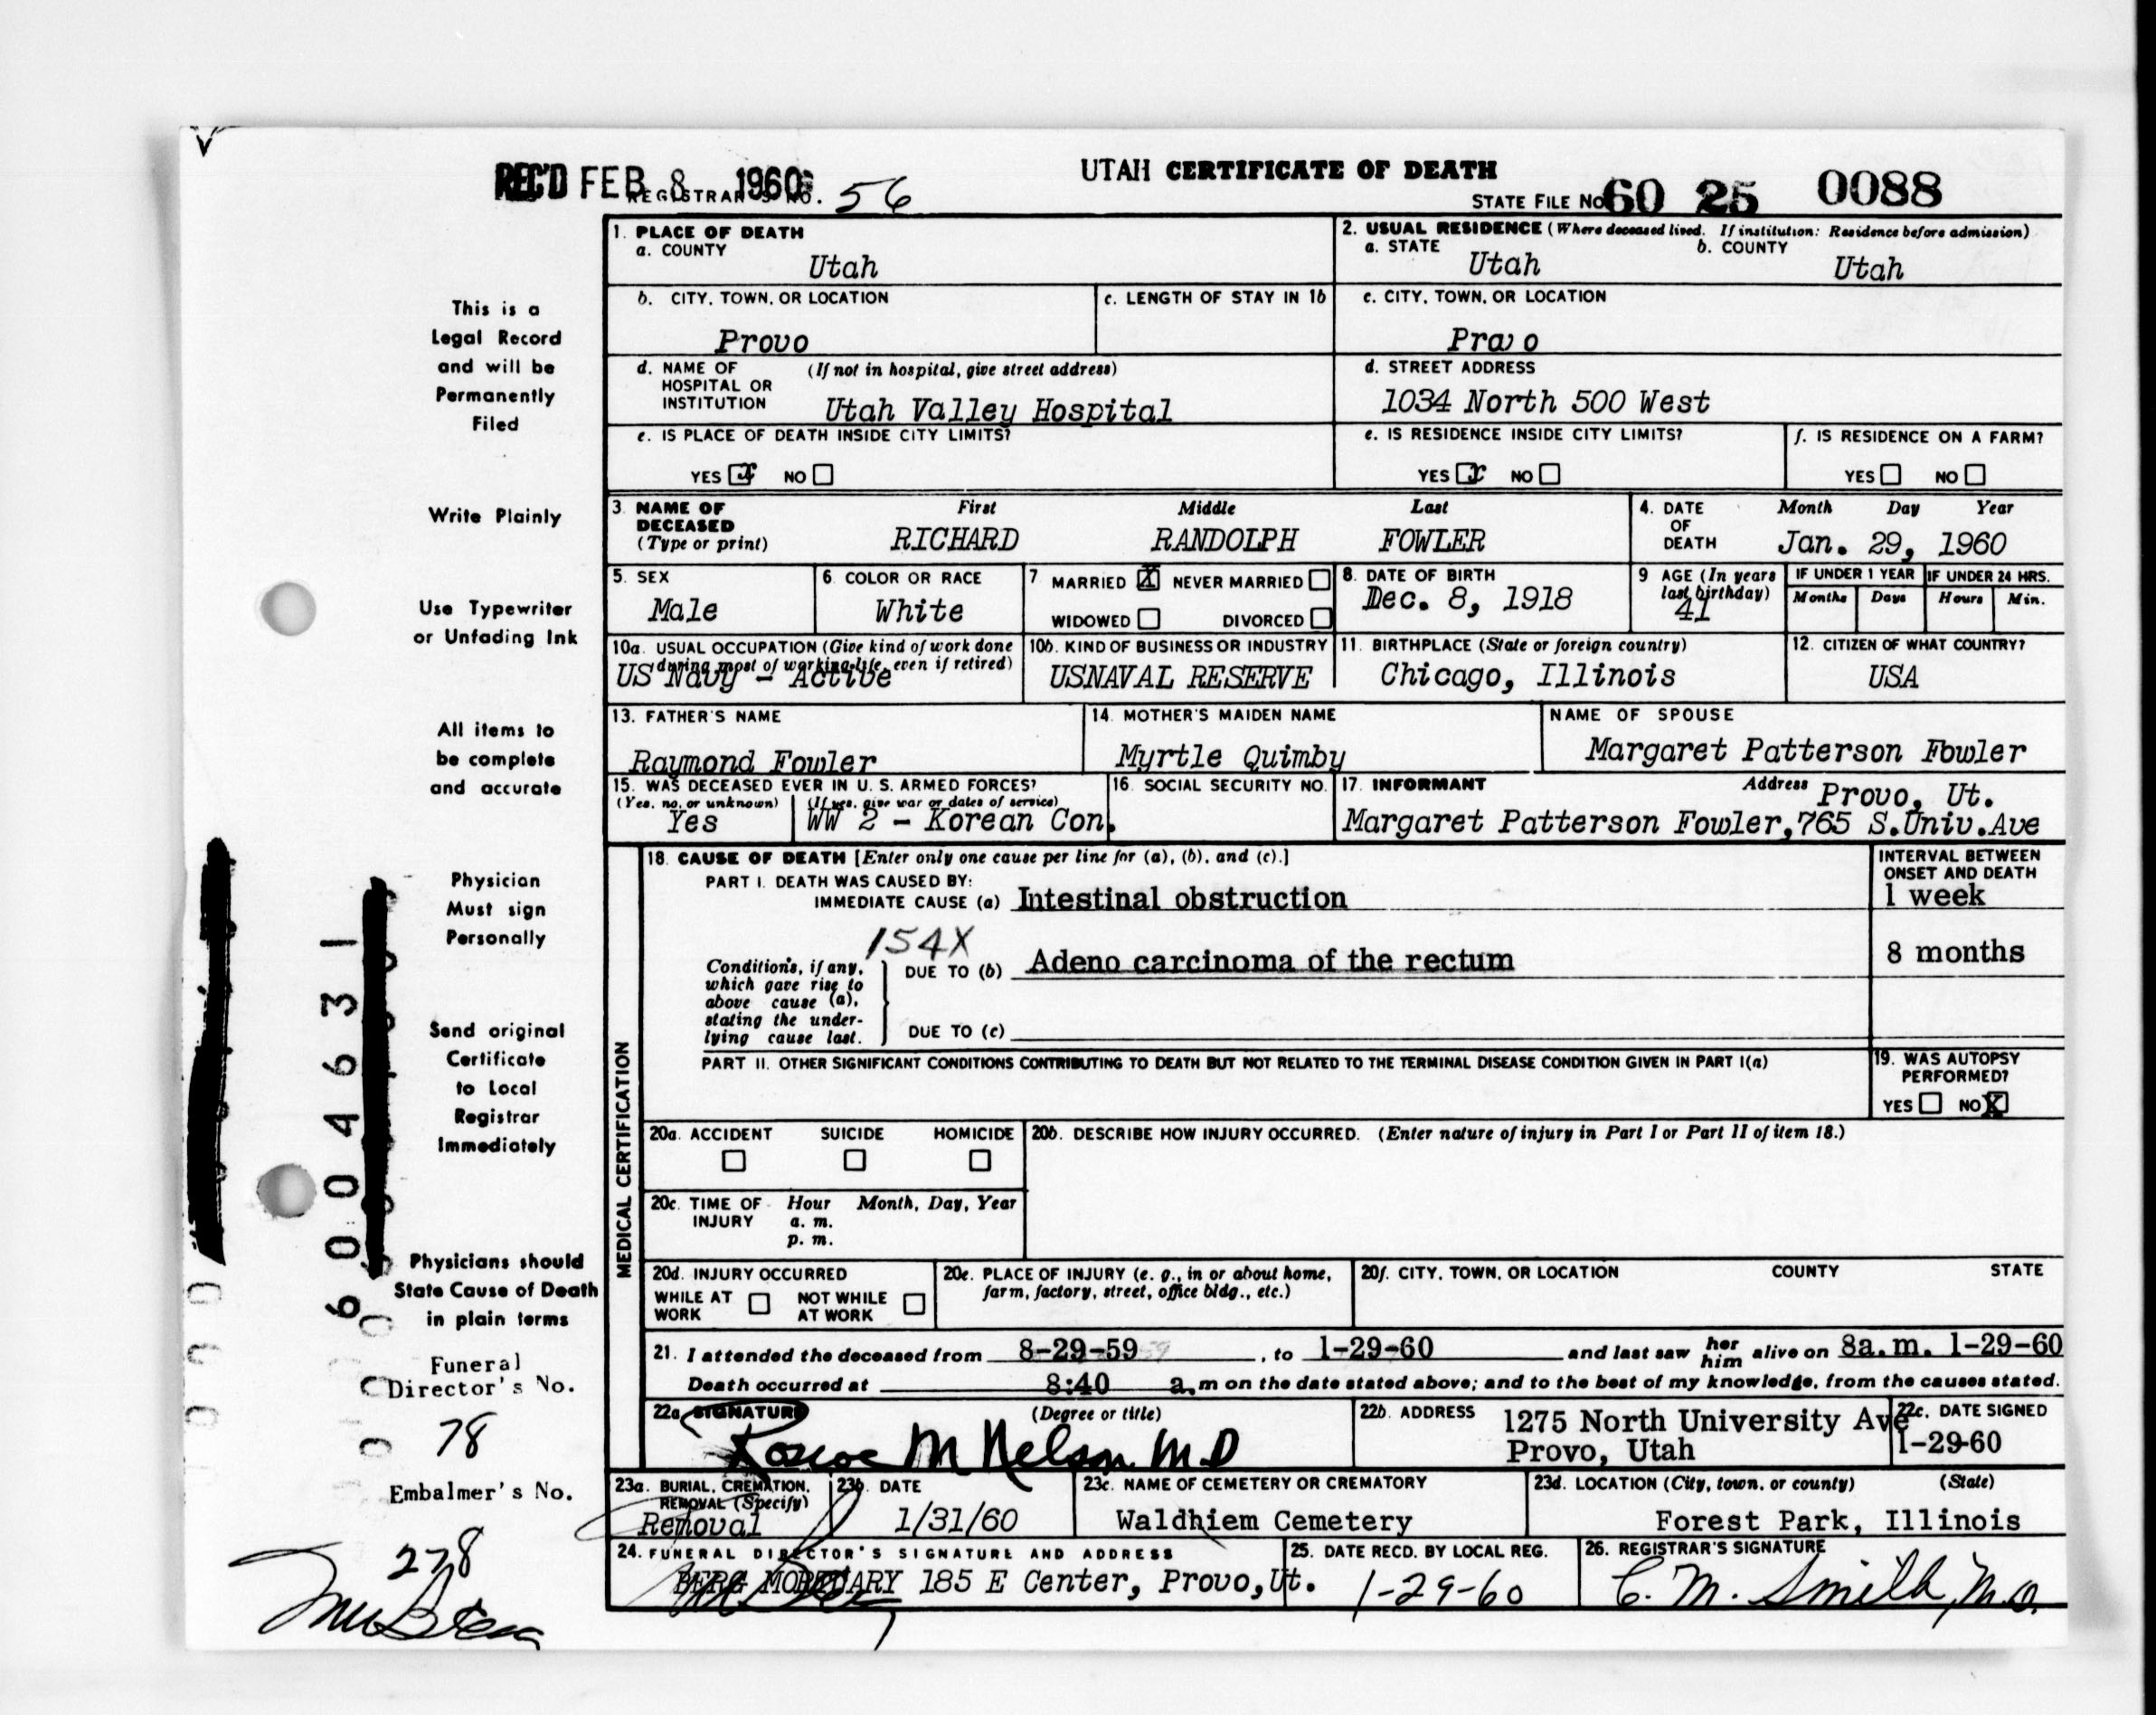 UTAH CERTIFICATE OF DEATH
REC'D FEB 8 1960 REGISTRAR'S NO. 56
STATE FILE NO. 60 25 0088
1. PLACE OF DEATH
a. COUNTY
Utah
2. USUAL RESIDENCE (Where deceased lived. If institution: Residence before admission)
a. STATE
Utah
b. COUNTY
Utah
b. CITY, TOWN, OR LOCATION
Provo
c. LENGTH OF STAY IN 1b
c. CITY, TOWN, OR LOCATION
Provo
d. NAME OF HOSPITAL OR INSTITUTION (If not in hospital, give street address)
Utah Valley Hospital
d. STREET ADDRESS
1034 North 500 West
e. IS PLACE OF DEATH INSIDE CITY LIMITS?
YES x NO
e. IS RESIDENCE INSIDE CITY LIMITS?
YES x NO
f. IS RESIDENCE ON A FARM?
YES NO
3. NAME OF DECEASED (Type or print)
First Middle Last
RICHARD RANDOLPH FOWLER
4. DATE OF DEATH
Month Day Year
Jan. 29, 1960
5. SEX
Male
6. COLOR OR RACE
White
7 MARRIED X NEVER MARRIED
WIDOWED DIVORCED
8. DATE OF BIRTH
Dec. 8, 1918
9 AGE (In years last birthday)
41
IF UNDER 1 YEAR
Months Days
IF UNDER 24 HRS.
Hours Min.
10a. USUAL OCCUPATION (Give kind of work done during most of working life, even if retired)
US Navy - Active
10b. KIND OF BUSINESS OR INDUSTRY
USNAVAL RESERVE
11. BIRTHPLACE (State or foreign country)
Chicago, Illinois
12. CITIZEN OF WHAT COUNTRY?
USA
13. FATHER'S NAME
Raymond Fowler
14. MOTHER'S MAIDEN NAME
Myrtle Quimby
NAME OF SPOUSE
Margaret Patterson Fowler
15. WAS DECEASED EVER IN U. S. ARMED FORCES?
(Yes, no, or unknown) (If yes, give war or dates of service)
Yes WW 2 - Korean Con.
16. SOCIAL SECURITY NO.
17. INFORMANT Address
Provo, Ut.
Margaret Patterson Fowler,765 S.Univ.Ave
MEDICAL CERTIFICATION
18. CAUSE OF DEATH [Enter only one cause per line for (a), (b), and (c).]
INTERVAL BETWEEN ONSET AND DEATH
PART I. DEATH WAS CAUSED BY:
IMMEDIATE CAUSE (a) Intestinal obstruction
1 week
154X
Conditions, if any, which gave rise to above cause (a), stating the underlying cause last.
DUE TO (b) Adeno carcinoma of the rectum
8 months
DUE TO (c)
PART II. OTHER SIGNIFICANT CONDITIONS CONTRIBUTING TO DEATH BUT NOT RELATED TO THE TERMINAL DISEASE CONDITION GIVEN IN PART I(a)
19. WAS AUTOPSY PERFORMED?
YES NO X
20a. ACCIDENT SUICIDE HOMICIDE
20b. DESCRIBE HOW INJURY OCCURRED. (Enter nature of injury in Part I or Part II of item 18.)
20c. TIME OF INJURY Hour Month, Day, Year
a. m.
p. m.
20d. INJURY OCCURRED
WHILE AT WORK NOT WHILE AT WORK
20e. PLACE OF INJURY (e. g., in or about home, farm, factory, street, office bldg., etc.)
20f. CITY, TOWN, OR LOCATION COUNTY STATE
21. I attended the deceased from 8-29-59, to 1-29-60 and last saw her him alive on 8a.m. 1-29-60
Death occurred at 8:40 a.m on the date stated above; and to the best of my knowledge, from the causes stated.
22a SIGNATURE (Degree or title)
Roscoe M Nelson M.D
22b. ADDRESS
1275 North University Ave
Provo, Utah
22c. DATE SIGNED
1-29-60
23a. BURIAL, CREMATION, REMOVAL (Specify)
Removal
23b. DATE
1/31/60
23c. NAME OF CEMETERY OR CREMATORY
Waldhiem Cemetery
23d. LOCATION (City, town, or county) (State)
Forest Park, Illinois
24. FUNERAL DIRECTOR'S SIGNATURE AND ADDRESS
BERG MORTUARY 185 E Center, Provo,Ut.
25. DATE RECD. BY LOCAL REG.
1-29-60
26. REGISTRAR'S SIGNATURE
C. M. Smith, M.D.
This is a
Legal Record
and will be
Permanently
Filed
Write Plainly
Use Typewriter
or Unfading Ink
All items to
be complete
and accurate
Physician
Must sign
Personally
Send original
Certificate
to Local
Registrar
Immediately
Physicians should
State Cause of Death
in plain terms
Funeral
Director's No.
78
Embalmer's No.
278
6004631